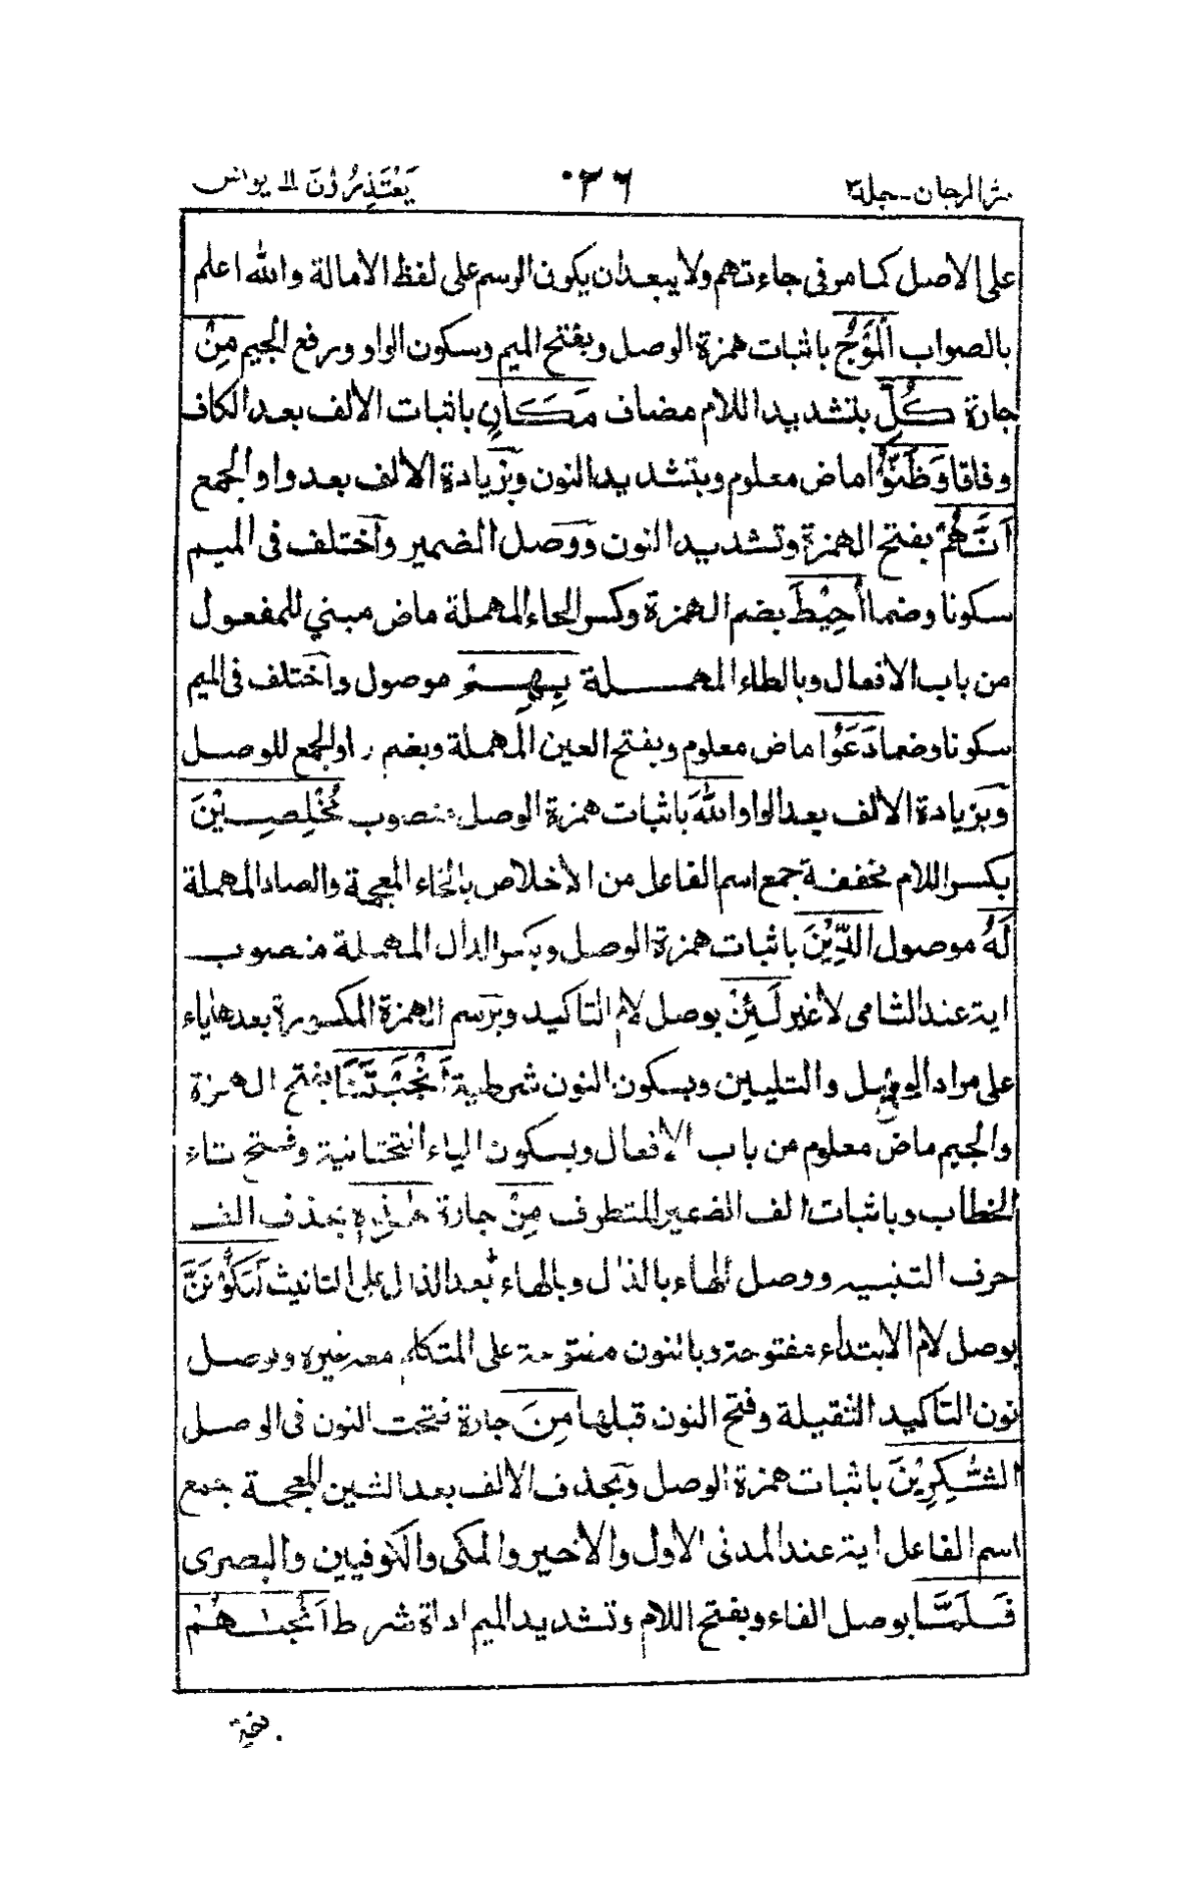 نثر المرجان - جلد ٣
٠٣٦
يَعْتَذِرُوْنَ ١١ يونس
على الاصل كما مر فى جاءتهم ولا يبعد ان يكون الرسم على لفظ الامالة والله اعلم
بالصواب الْمَوْجُ باثبات همزة الوصل وبفتح الميم وسكون الواو ورفع الجيم مِنْ
جارة كُلِّ بتشديد اللام مضاف مَكَانٍ باثبات الالف بعد الكاف
وفاقا وَظَنُّوْا ماض معلوم وبتشديد النون وبزيادة الالف بعد واو الجمع
اَنَّهُمْ بفتح الهمزة وتشديد النون ووصل الضمير واختلف فى الميم
سكونا وضما اُحِيْطَ بضم الهمزة وكسر الحاء المهملة ماض مبني للمفعول
من باب الافعال وبالطاء المهملة بِهِمْ موصول واختلف فى الميم
سكونا وضما دَعَوُا ماض معلوم وبفتح العين المهملة وبضم واو الجمع للوصل
وبزيادة الالف بعد الواو اللهَ باثبات همزة الوصل منصوب مُخْلِصِيْنَ
بكسر اللام مخففة جمع اسم الفاعل من الاخلاص بالخاء المعجمة والصاد المهملة
لَهُ موصول الدِّيْنَ باثبات همزة الوصل وبكسر الدال المهملة منصوب
اية عند الشامى لا غير لَئِنْ بوصل لام التاكيد وبرسم الهمزة المكسورة بعدها ياء
على مراد الوصل والتليين وبسكون النون شرطية اَنْجَيْتَنَا بفتح الهمزة
والجيم ماض معلوم من باب الافعال وبسكون الياء التحتانية وفتح تاء
الخطاب وباثبات الف الضمير المتطرف مِنْ جارة هٰذِهِ بحذف الف
حرف التنبيه ووصل الهاء بالذال وبالهاء بعد الذال على التانيث لَنَكُوْنَنَّ
بوصل لام الابتداء مفتوحة وبالنون مفتوحة على المتكلم معه غيره وبوصل
نون التاكيد الثقيلة وفتح النون قبلها مِنَ جارة فتحت النون فى الوصل
الشّٰكِرِيْنَ باثبات همزة الوصل وبحذف الالف بعد الشين المعجمة جمع
اسم الفاعل اية عند المدنى الاول والاخير والمكى والكوفيين والبصرى
فَلَمَّا بوصل الفاء وبفتح اللام وتشديد الميم اداة شرط اَنْجٰىهُمْ